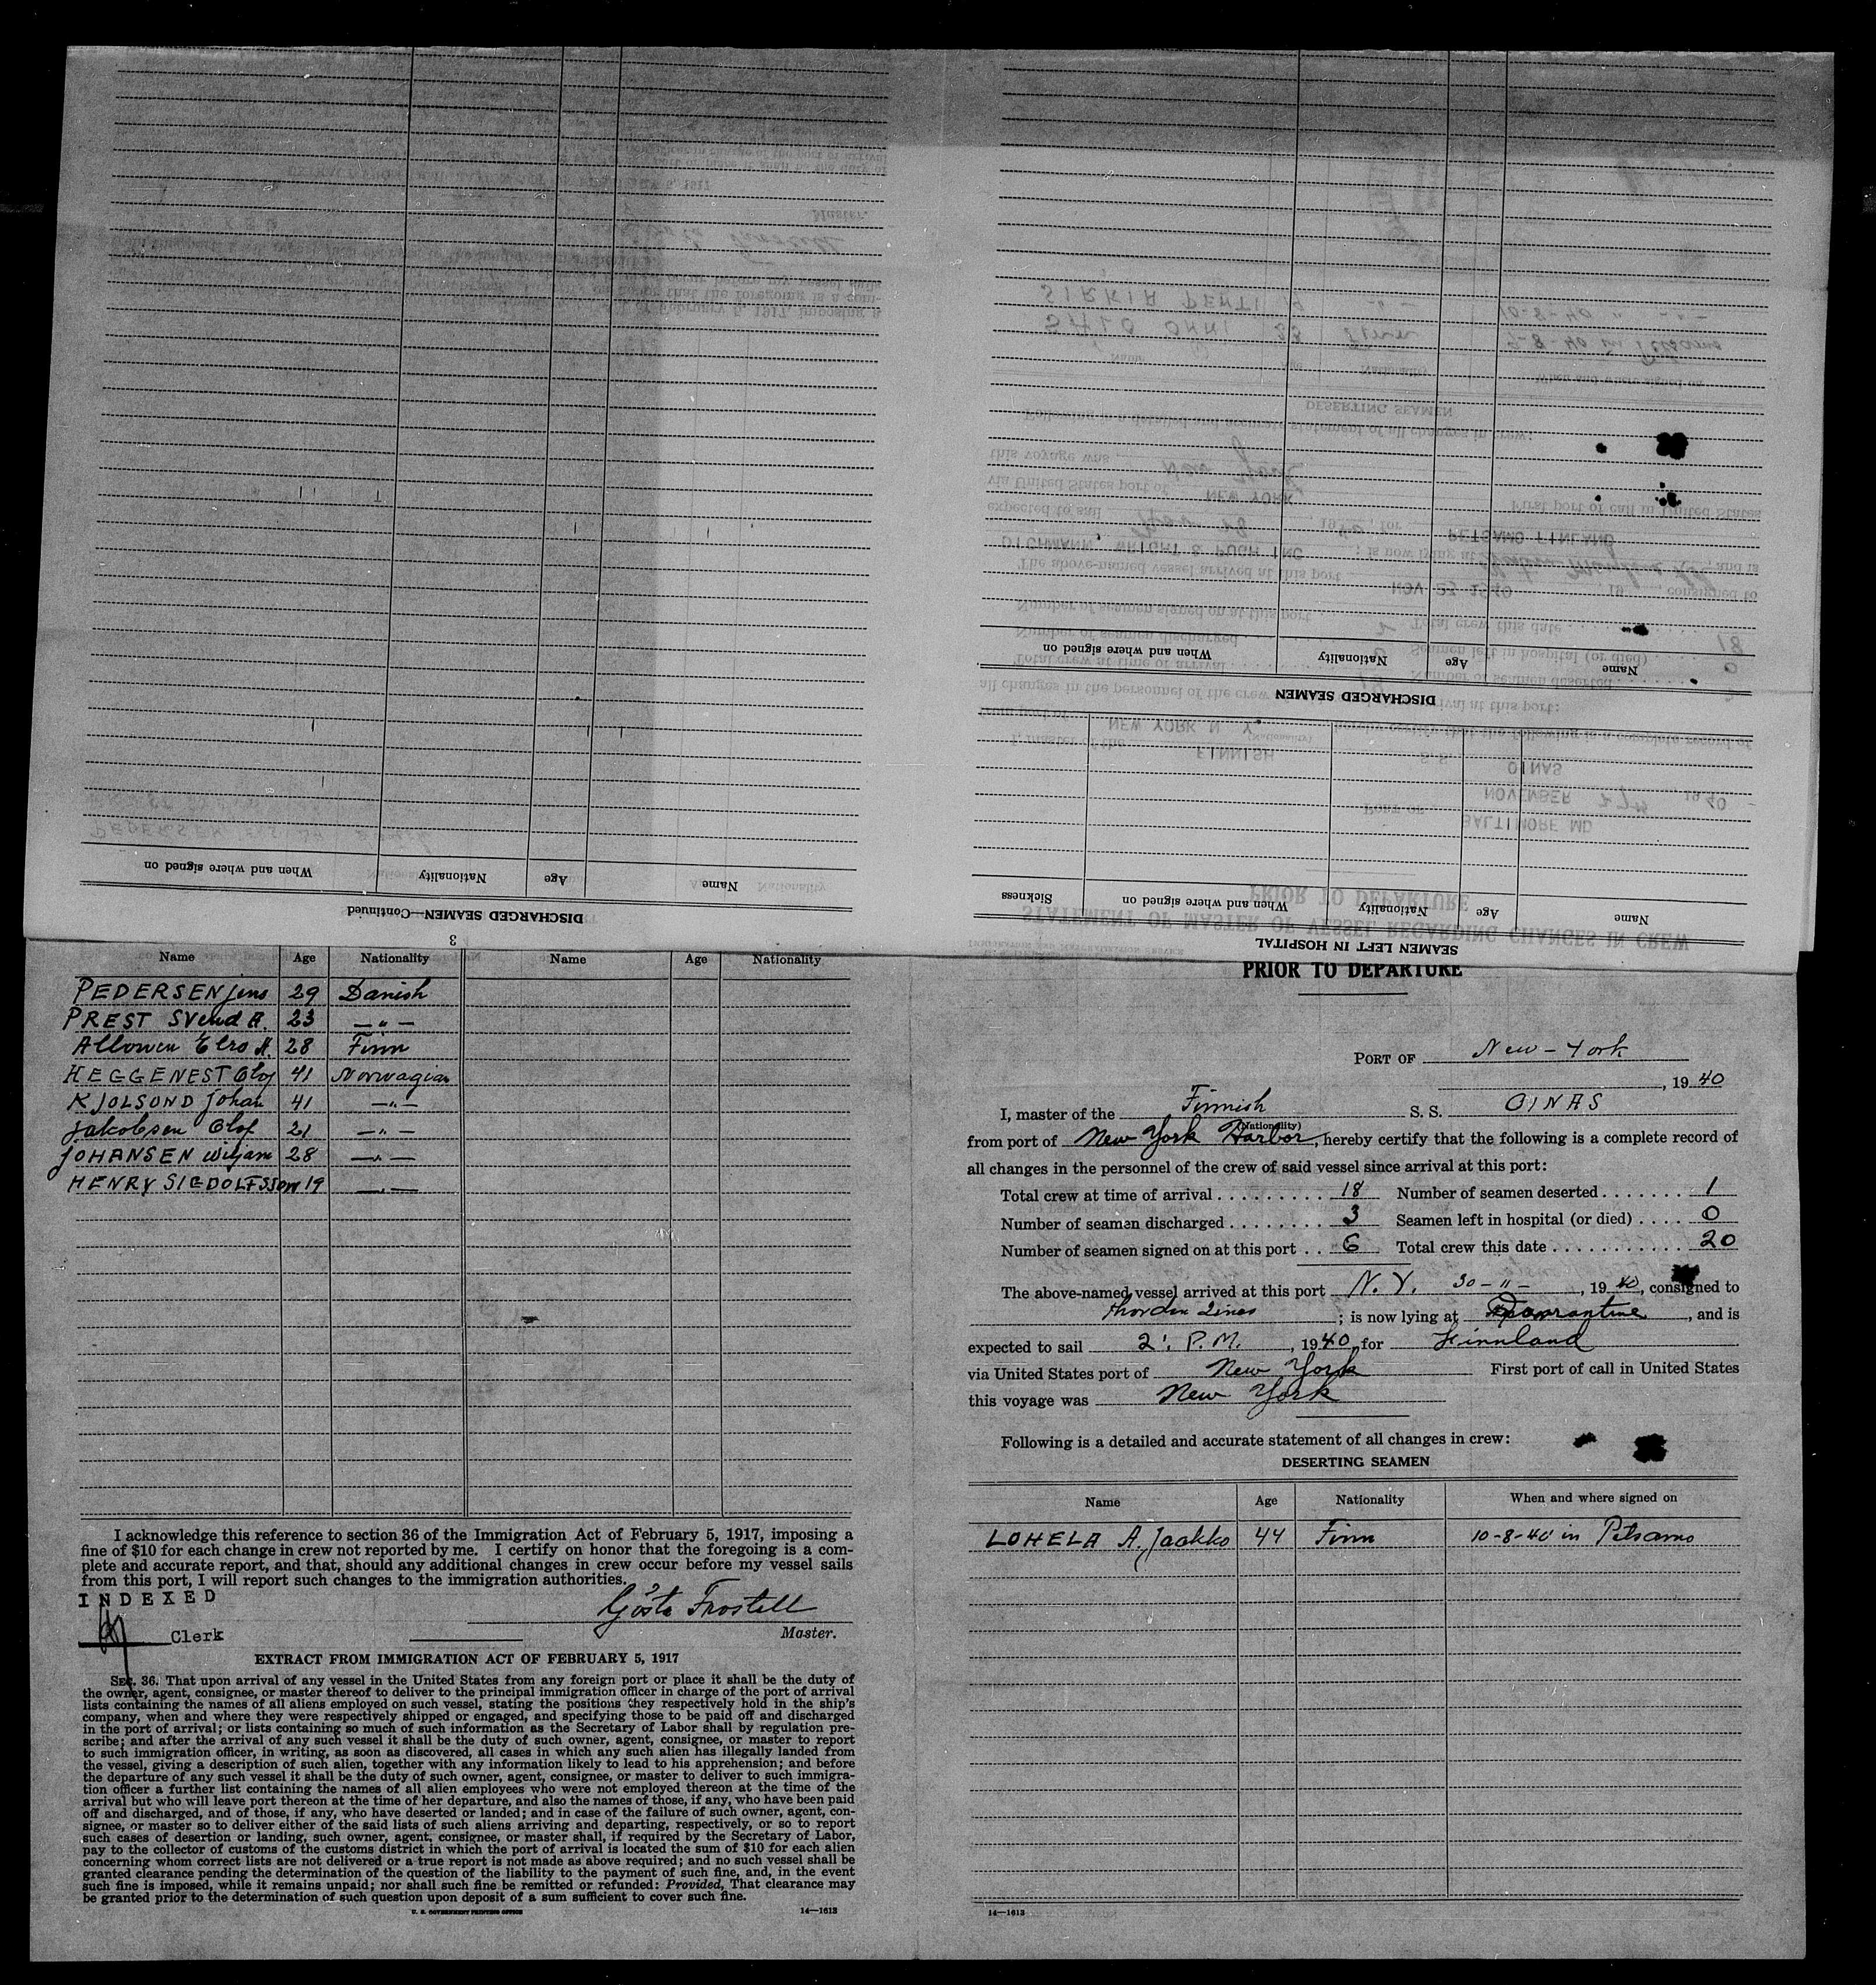 DISCHARGED SEAMEN—Continued
Name Age Nationality When and where signed on
3
SEAMEN LEFT IN HOSPITAL
Name Age Nationality When and where signed on Sickness
DISCHARGED SEAMEN
Name Age Nationality When and where signed on
Name Age Nationality Name Age Nationality
PEDERSEN Jens 29 Danish
PREST SVend A. 23 — " —
Allowen Elro A. 28 Finn
HEGGENEST Olof 41 Norwagian
KJOLSOND Johan 41 — " —
Jakobsen Olof 21 — " —
JOHANSEN Wiljam 28 — " —
HENRY SIGDOLFSSON 19 — " —
I acknowledge this reference to section 36 of the Immigration Act of February 5, 1917, imposing a
fine of $10 for each change in crew not reported by me. I certify on honor that the foregoing is a com-
plete and accurate report, and that, should any additional changes in crew occur before my vessel sails
from this port, I will report such changes to the immigration authorities.
INDEXED
Gösta Frostell
Clerk Master.
EXTRACT FROM IMMIGRATION ACT OF FEBRUARY 5, 1917
SEC. 36. That upon arrival of any vessel in the United States from any foreign port or place it shall be the duty of
the owner, agent, consignee, or master thereof to deliver to the principal immigration officer in charge of the port of arrival
lists containing the names of all aliens employed on such vessel, stating the positions they respectively hold in the ship's
company, when and where they were respectively shipped or engaged, and specifying those to be paid off and discharged
in the port of arrival; or lists containing so much of such information as the Secretary of Labor shall by regulation pre-
scribe; and after the arrival of any such vessel it shall be the duty of such owner, agent, consignee, or master to report
to such immigration officer, in writing, as soon as discovered, all cases in which any such alien has illegally landed from
the vessel, giving a description of such alien, together with any information likely to lead to his apprehension; and before
the departure of any such vessel it shall be the duty of such owner, agent, consignee, or master to deliver to such immigra-
tion officer a further list containing the names of all alien employees who were not employed thereon at the time of the
arrival but who will leave port thereon at the time of her departure, and also the names of those, if any, who have been paid
off and discharged, and of those, if any, who have deserted or landed; and in case of the failure of such owner, agent, con-
signee, or master so to deliver either of the said lists of such aliens arriving and departing, respectively, or so to report
such cases of desertion or landing, such owner, agent, consignee, or master shall, if required by the Secretary of Labor,
pay to the collector of customs of the customs district in which the port of arrival is located the sum of $10 for each alien
concerning whom correct lists are not delivered or a true report is not made as above required; and no such vessel shall be
granted clearance pending the determination of the question of the liability to the payment of such fine, and, in the event
such fine is imposed, while it remains unpaid; nor shall such fine be remitted or refunded: Provided, That clearance may
be granted prior to the determination of such question upon deposit of a sum sufficient to cover such fine.
U. S. GOVERNMENT PRINTING OFFICE 14—1613
PRIOR TO DEPARTURE
PORT OF New-York
, 19 40
I, master of the Finnish S. S. OINAS
(Nationality)
from port of New York Harbor, hereby certify that the following is a complete record of
all changes in the personnel of the crew of said vessel since arrival at this port:
Total crew at time of arrival . . . . . . . . . . 18 Number of seamen deserted . . . . . . . 1
Number of seamen discharged . . . . . . . . 3 Seamen left in hospital (or died) . . . . 0
Number of seamen signed on at this port . . 6 Total crew this date . . . . . . . . . . . . 20
The above-named vessel arrived at this port N.Y. 30 – 11 – , 19 40, consigned to
Thorden Lines ; is now lying at Quarantine, and is
expected to sail 2: P.M. , 1940, for Finnland
via United States port of New York First port of call in United States
this voyage was New York
Following is a detailed and accurate statement of all changes in crew:
DESERTING SEAMEN
Name Age Nationality When and where signed on
LOHELA A. Jaakko 44 Finn 10-8-40 in Petsamo
14—1613